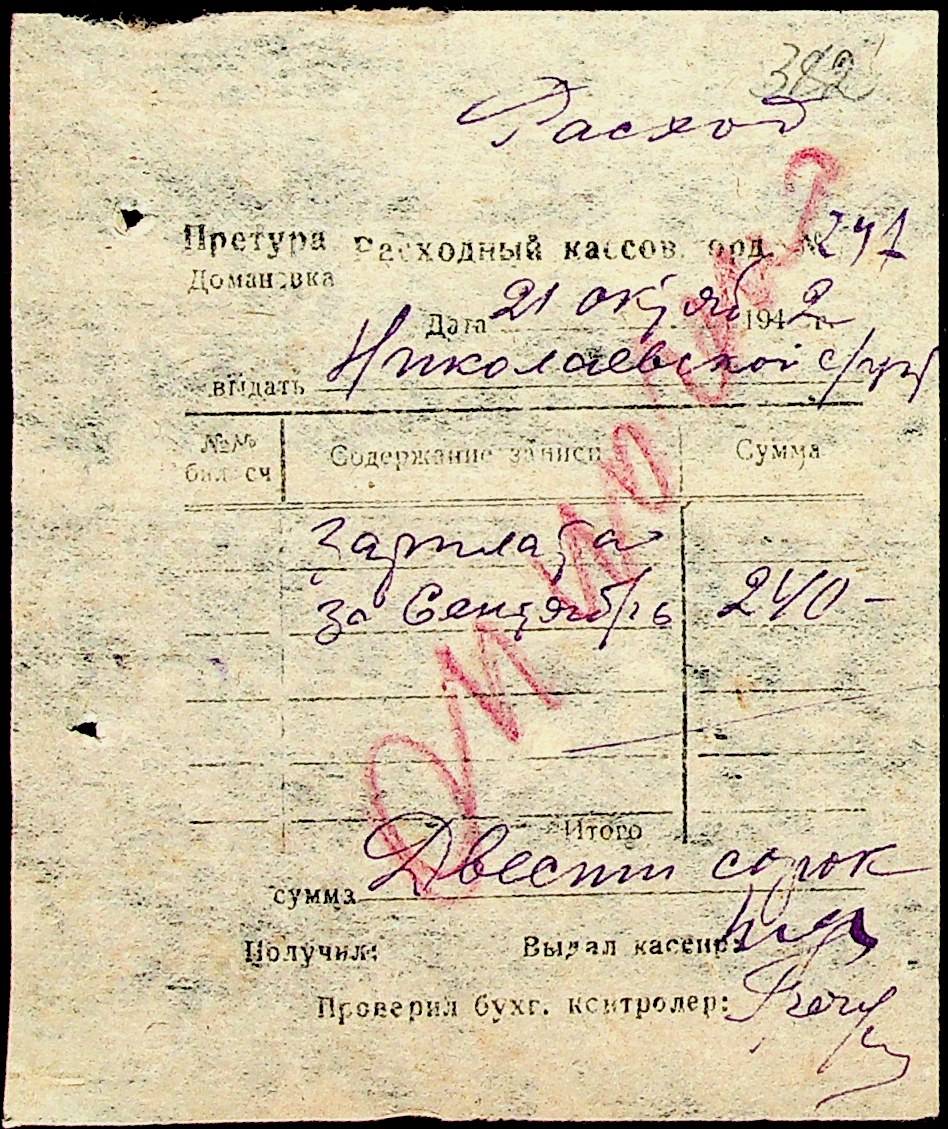 382
Расход
Претура Расходный кассов. орд. № 241
Домановка
Дата 21 октяб 1942 г.
выдать Николаевской с/упр
№№ Содержание записи Сумма
бал сч
Зарплата
за Сентябрь 240 –
Итого
сумма Двести сорок
Получил: Выдал кассир:
Проверил бухг. контролер: